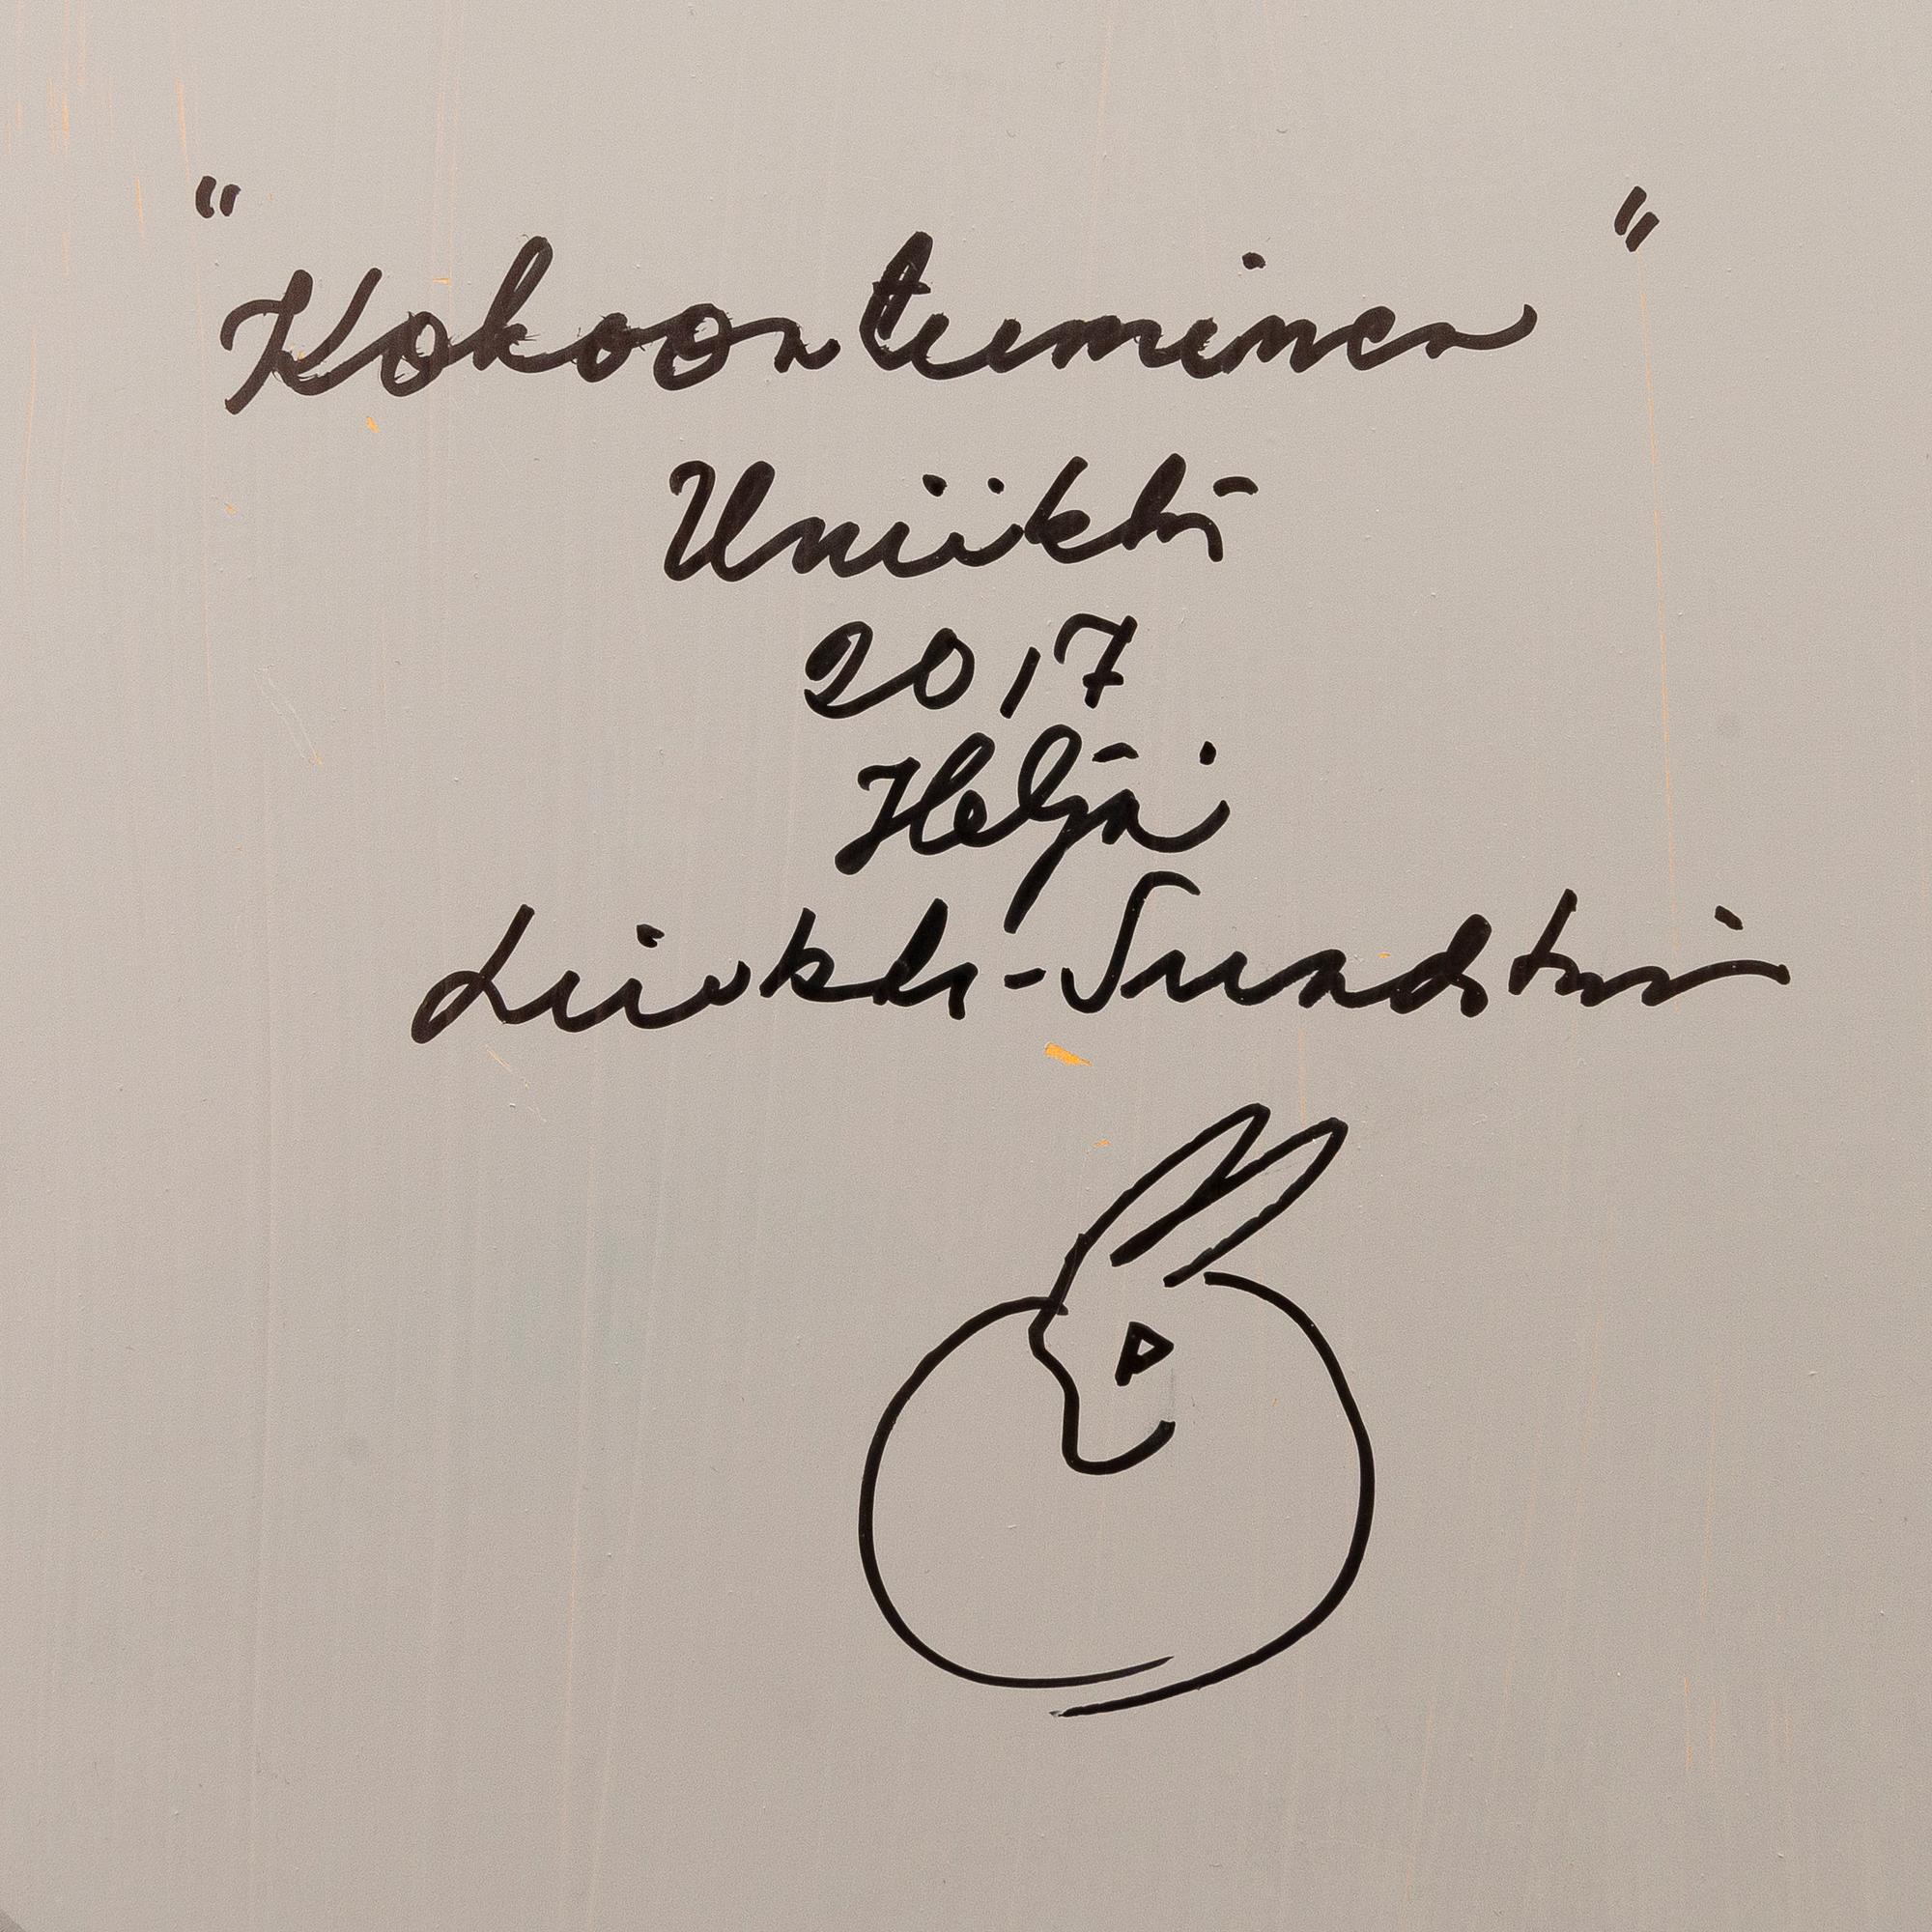 "Kokoontuminen"
Uniikki
2017
Heljä
Liukko-Sundström